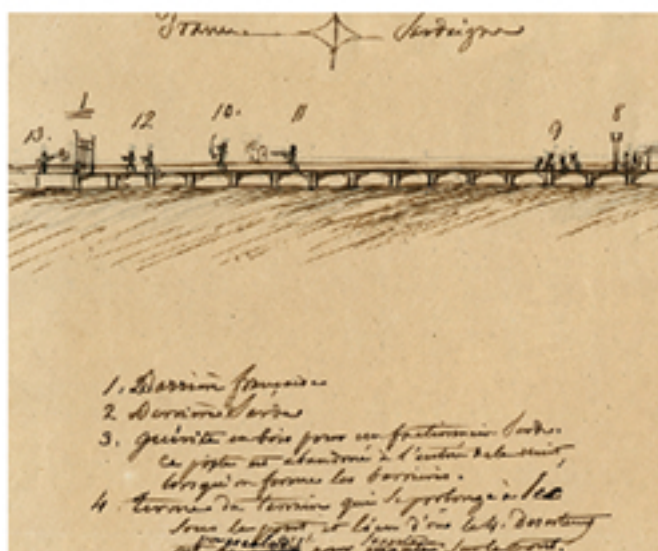 France Sardaigne
1
13. 12 10. 11 9 8
1. Barrière française
2 Barrière Sarde
3. guérite en bois pour un factionnaire Sarde.
ce poste est abandonné à l'entrée de la nuit,
lorsqu'on ferme les barrières.
4 terme du terrain qui se prolonge à sec
sous le pont et lieu d'où le S. Deserteur